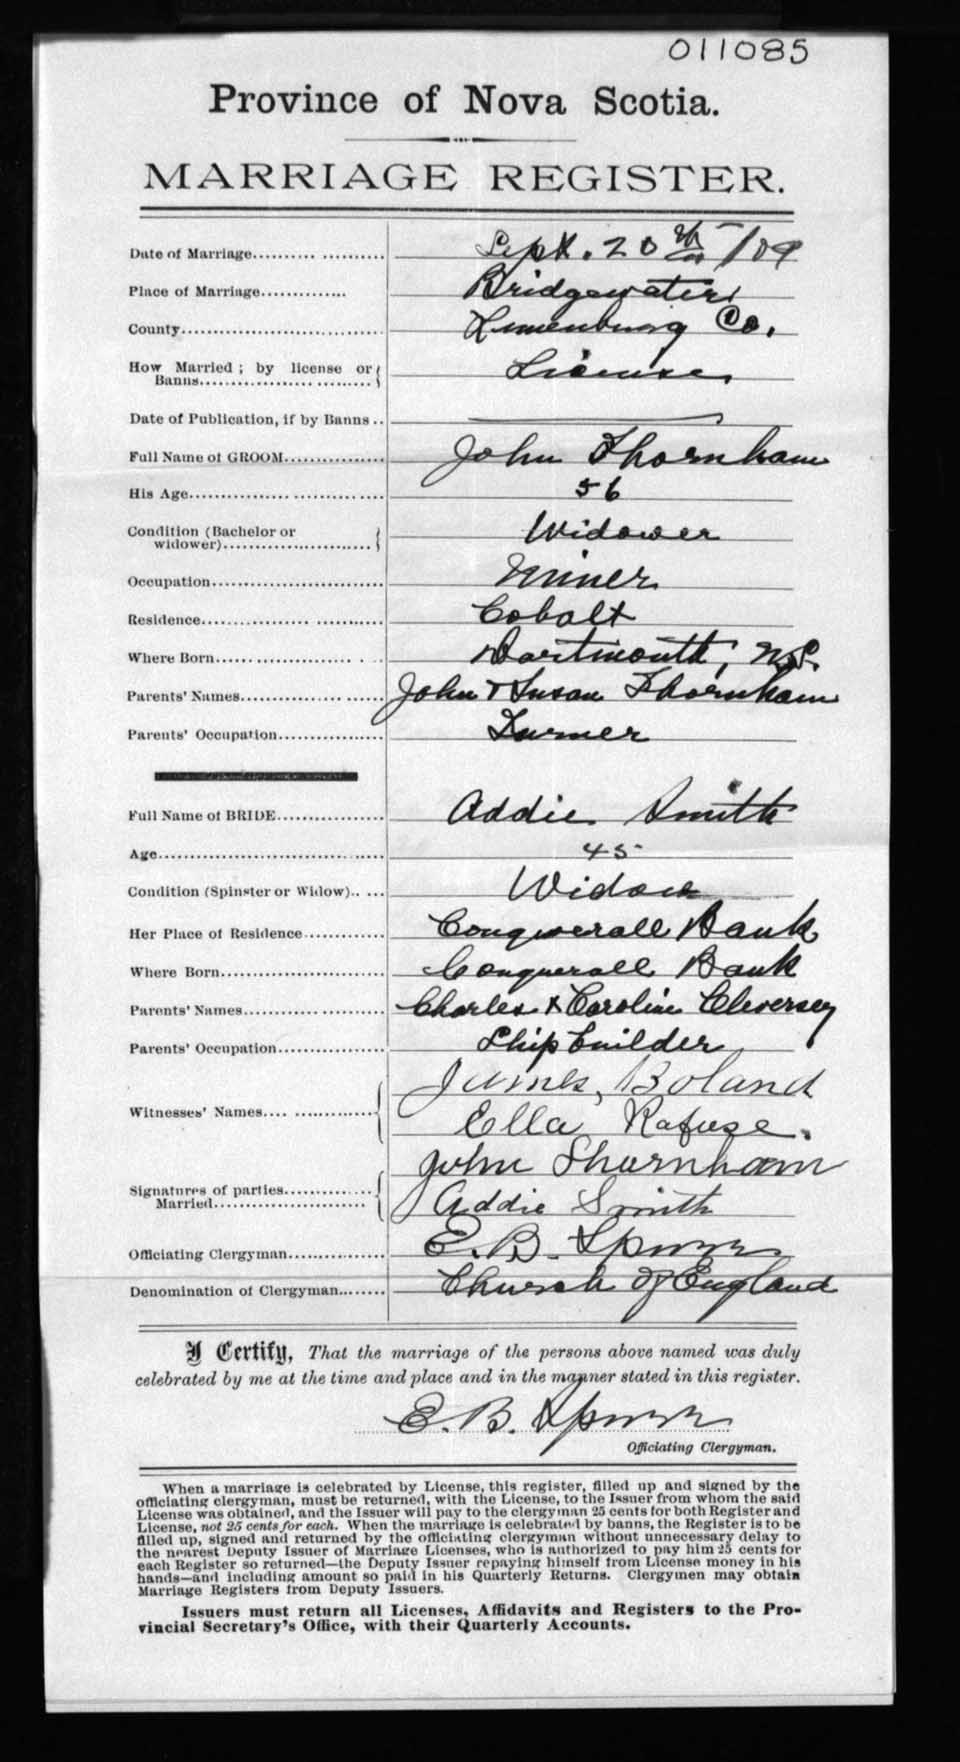 011085
Province of Nova Scotia.
MARRIAGE REGISTER.
Date of Marriage.................... Sept. 20th /09
Place of Marriage............. Bridgewater
County............................. Lunenburg Co.
How Married; by license or Banns.................... License
Date of Publication, if by Banns ..
Full Name of GROOM................ John Thornham
His Age............................. 56
Condition (Bachelor or widower)...................... Widower
Occupation......................... Miner
Residence.......................... Cobalt
Where Born................... Dartmouth, N.S.
Parents' Names..................... John & Susan Thornham
Parents' Occupation................ Farmer
Full Name of BRIDE................ Addie Smith
Age................................ 45
Condition (Spinster or Widow)..... Widow
Her Place of Residence............ Conquerall Bank
Where Born........................ Conquerall Bank
Parents' Names..................... Charles & Caroline Cleversey
Parents' Occupation................ Shipbuilder
Witnesses' Names.... ............ James, Boland
Ella Rafuse.
Signatures of parties............ John Thornham
Married.......................... Addie Smith
Officiating Clergyman............... E. B. Spurr
Denomination of Clergyman....... Church of England
I Certify, That the marriage of the persons above named was duly
celebrated by me at the time and place and in the manner stated in this register.
E. B. Spurr
Officiating Clergyman.
When a marriage is celebrated by License, this register, filled up and signed by the
officiating clergyman, must be returned, with the License, to the Issuer from whom the said
License was obtained, and the Issuer will pay to the clergyman 25 cents for both Register and
License, not 25 cents for each. When the marriage is celebrated by banns, the Register is to be
filled up, signed and returned by the officiating clergyman without unnecessary delay to
the nearest Deputy Issuer of Marriage Licenses, who is authorized to pay him 25 cents for
each Register so returned—the Deputy Issuer repaying himself from License money in his
hands—and including amount so paid in his Quarterly Returns. Clergymen may obtain
Marriage Registers from Deputy Issuers.
Issuers must return all Licenses, Affidavits and Registers to the Pro-
vincial Secretary's Office, with their Quarterly Accounts.